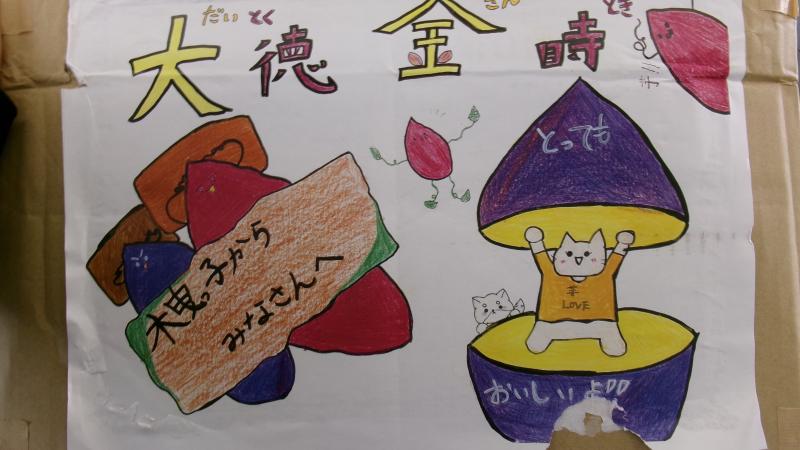 だいとく さん とき
大徳金時
とっても
木曳っ子から
みなさんへ
芋
LOVE
おいしいよ!!